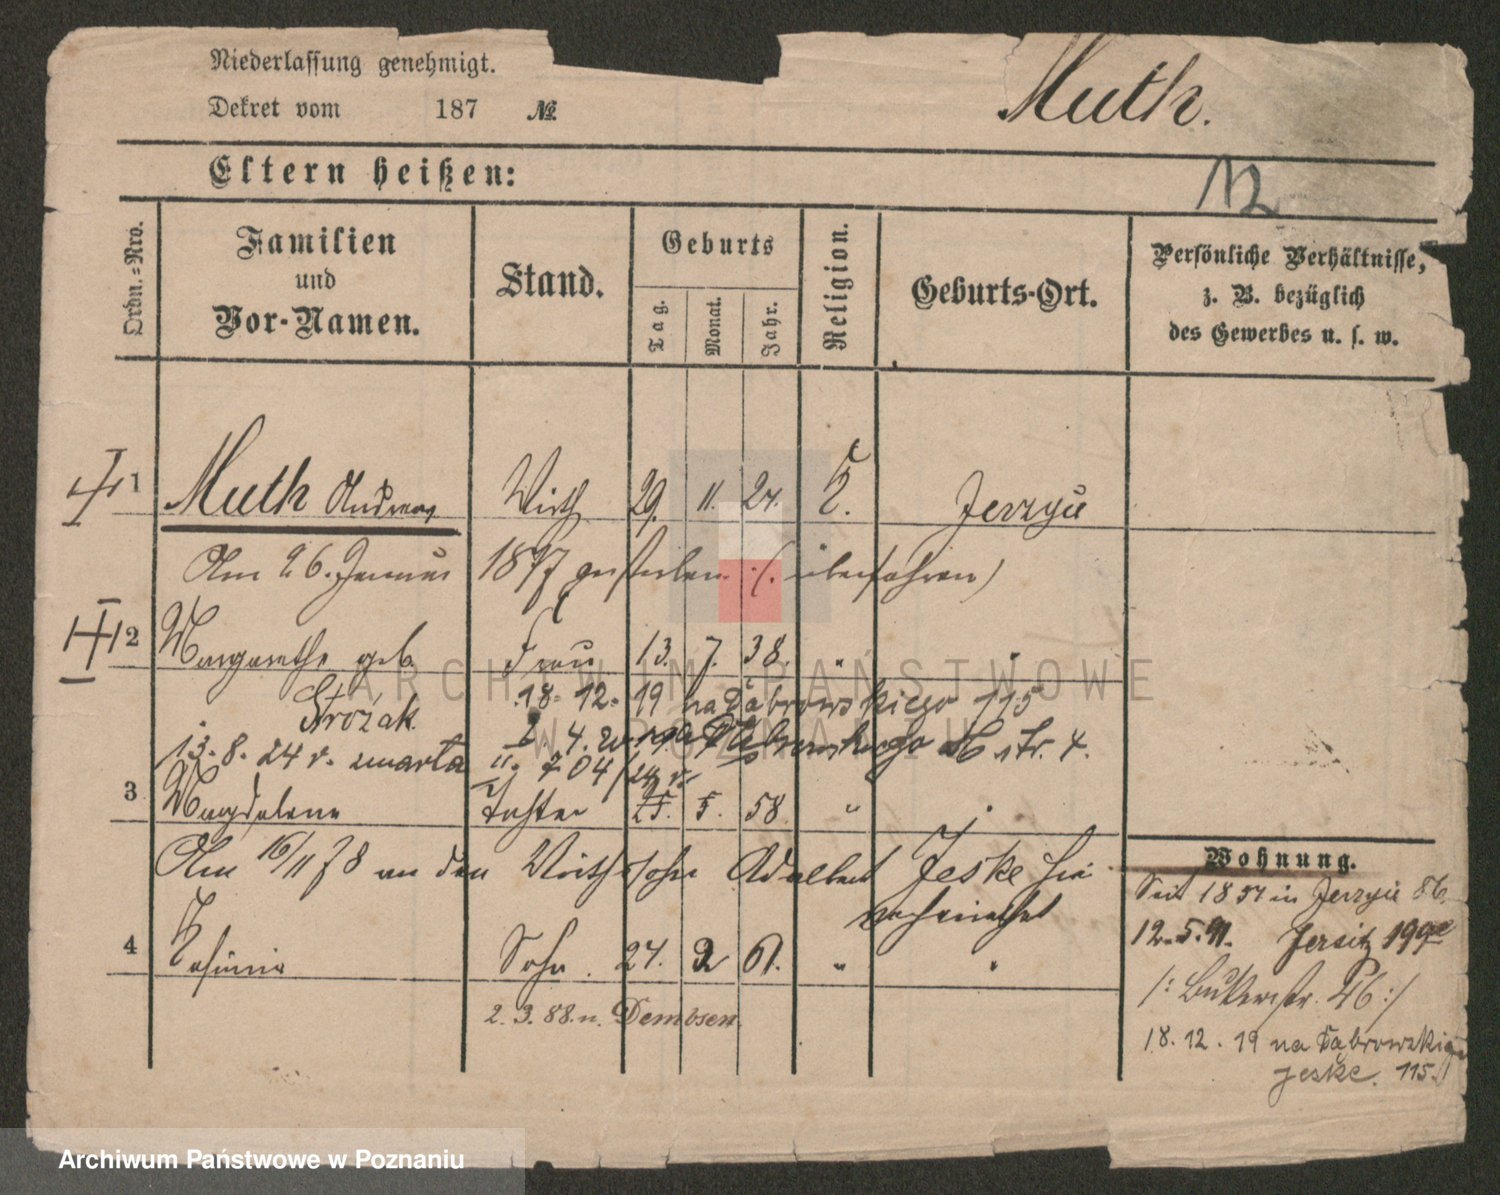 Niederlassung genehmigt.
Dekret vom 187 №
Muth.
Eltern heißen:
12
Ordn.=Nro.
Familien
und
Vor-Namen.
Stand.
Geburts
Tag.
Monat.
Jahr.
Religion.
Geburts-Ort.
Persönliche Verhältnisse,
z. B. bezüglich
des Gewerbes u. s. w.
1 Muth Andreas Wirth 29. 11. 27. k. Jerzyce
Am 26. Januar 1897 gestorben (überfahren)
2 Margarethe geb. Frau 13. 7. 38. " "
Strozak 18. 12. 19 na Dąbrowskiego 115
4. str. 4.
13. 8. 24 r. umarła 704/24 r.
3 Magdalena Tochter 25. 5. 58 " "
Am 16/11 78 an den Wirthssohn Adalbert Jeske hier
verheirathet
4 Sohn. 24. 2 61. " "
2. 3. 88. n. Dembsen
Wohnung.
Seit 1857 in Jerzyce 86.
12. 5. 91. Jersitz
/: Bukerstr. 26 :/
18. 12. 19 na Dąbrowskiego
Jeske. 115.
ARCHIWUM PAŃSTWOWE
W POZNANIU
Archiwum Państwowe w Poznaniu